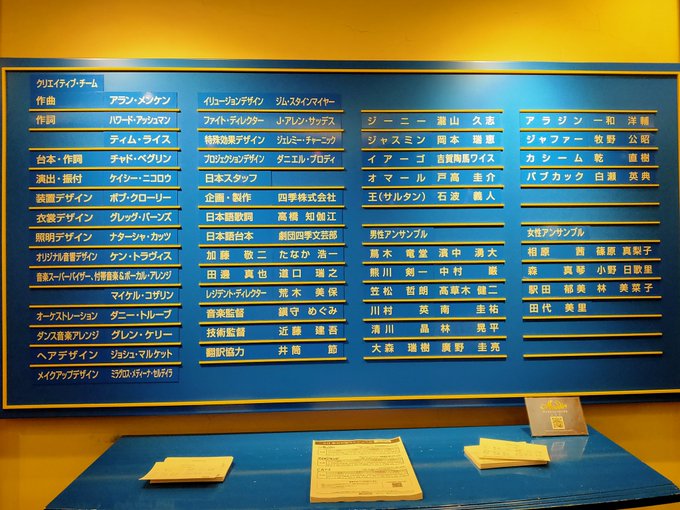 クリエイティブ・チーム
作曲 アラン・メンケン
作詞 ハワード・アッシュマン
ティム・ライス
台本・作詞 チャド・ベグリン
演出・振付 ケイシー・ニコロウ
装置デザイン ボブ・クローリー
衣裳デザイン グレッグ・バーンズ
照明デザイン ナターシャ・カッツ
オリジナル音響デザイン ケン・トラヴィス
音楽スーパーバイザー、付帯音楽&ボーカル・アレンジ
マイケル・コザリン
オーケストレーション ダニー・トルーブ
ダンス音楽アレンジ グレン・ケリー
ヘアデザイン ジョシュ・マルケット
メイクアップデザイン ミラグロス・メディーナ・セルデイラ
イリュージョンデザイン ジム・スタインマイヤー
ファイト・ディレクター J・アレン・サッデス
特殊効果デザイン ジェレミー・チャーニック
プロジェクションデザイン ダニエル・ブロディ
日本スタッフ
企画・製作 四季株式会社
日本語歌詞 高橋 知伽江
日本語台本 劇団四季文芸部
加藤 敬二 たなか 浩一
田邊 真也 道口 瑞之
レジデント・ディレクター 荒木 美保
音楽監督 鎮守 めぐみ
技術監督 近藤 建吾
翻訳協力 井筒 節
ジーニー 瀧山 久志
ジャスミン 岡本 瑞恵
イアーゴ 吉賀陶馬ワイス
オマール 戸高 圭介
王(サルタン) 石波 義人
男性アンサンブル
蔦木 竜堂 濱中 湧大
熊川 剣一 中村 巌
笠松 哲朗 高草木 健二
川村 英 南 圭祐
清川 晶 林 晃平
大森 瑞樹 廣野 圭亮
アラジン 一和 洋輔
ジャファー 牧野 公昭
カシーム 乾 直樹
バブカック 白瀬 英典
女性アンサンブル
相原 茜 篠原 真梨子
森 真琴 小野 日歌里
駅田 郁美 林 美菜子
田代 美里